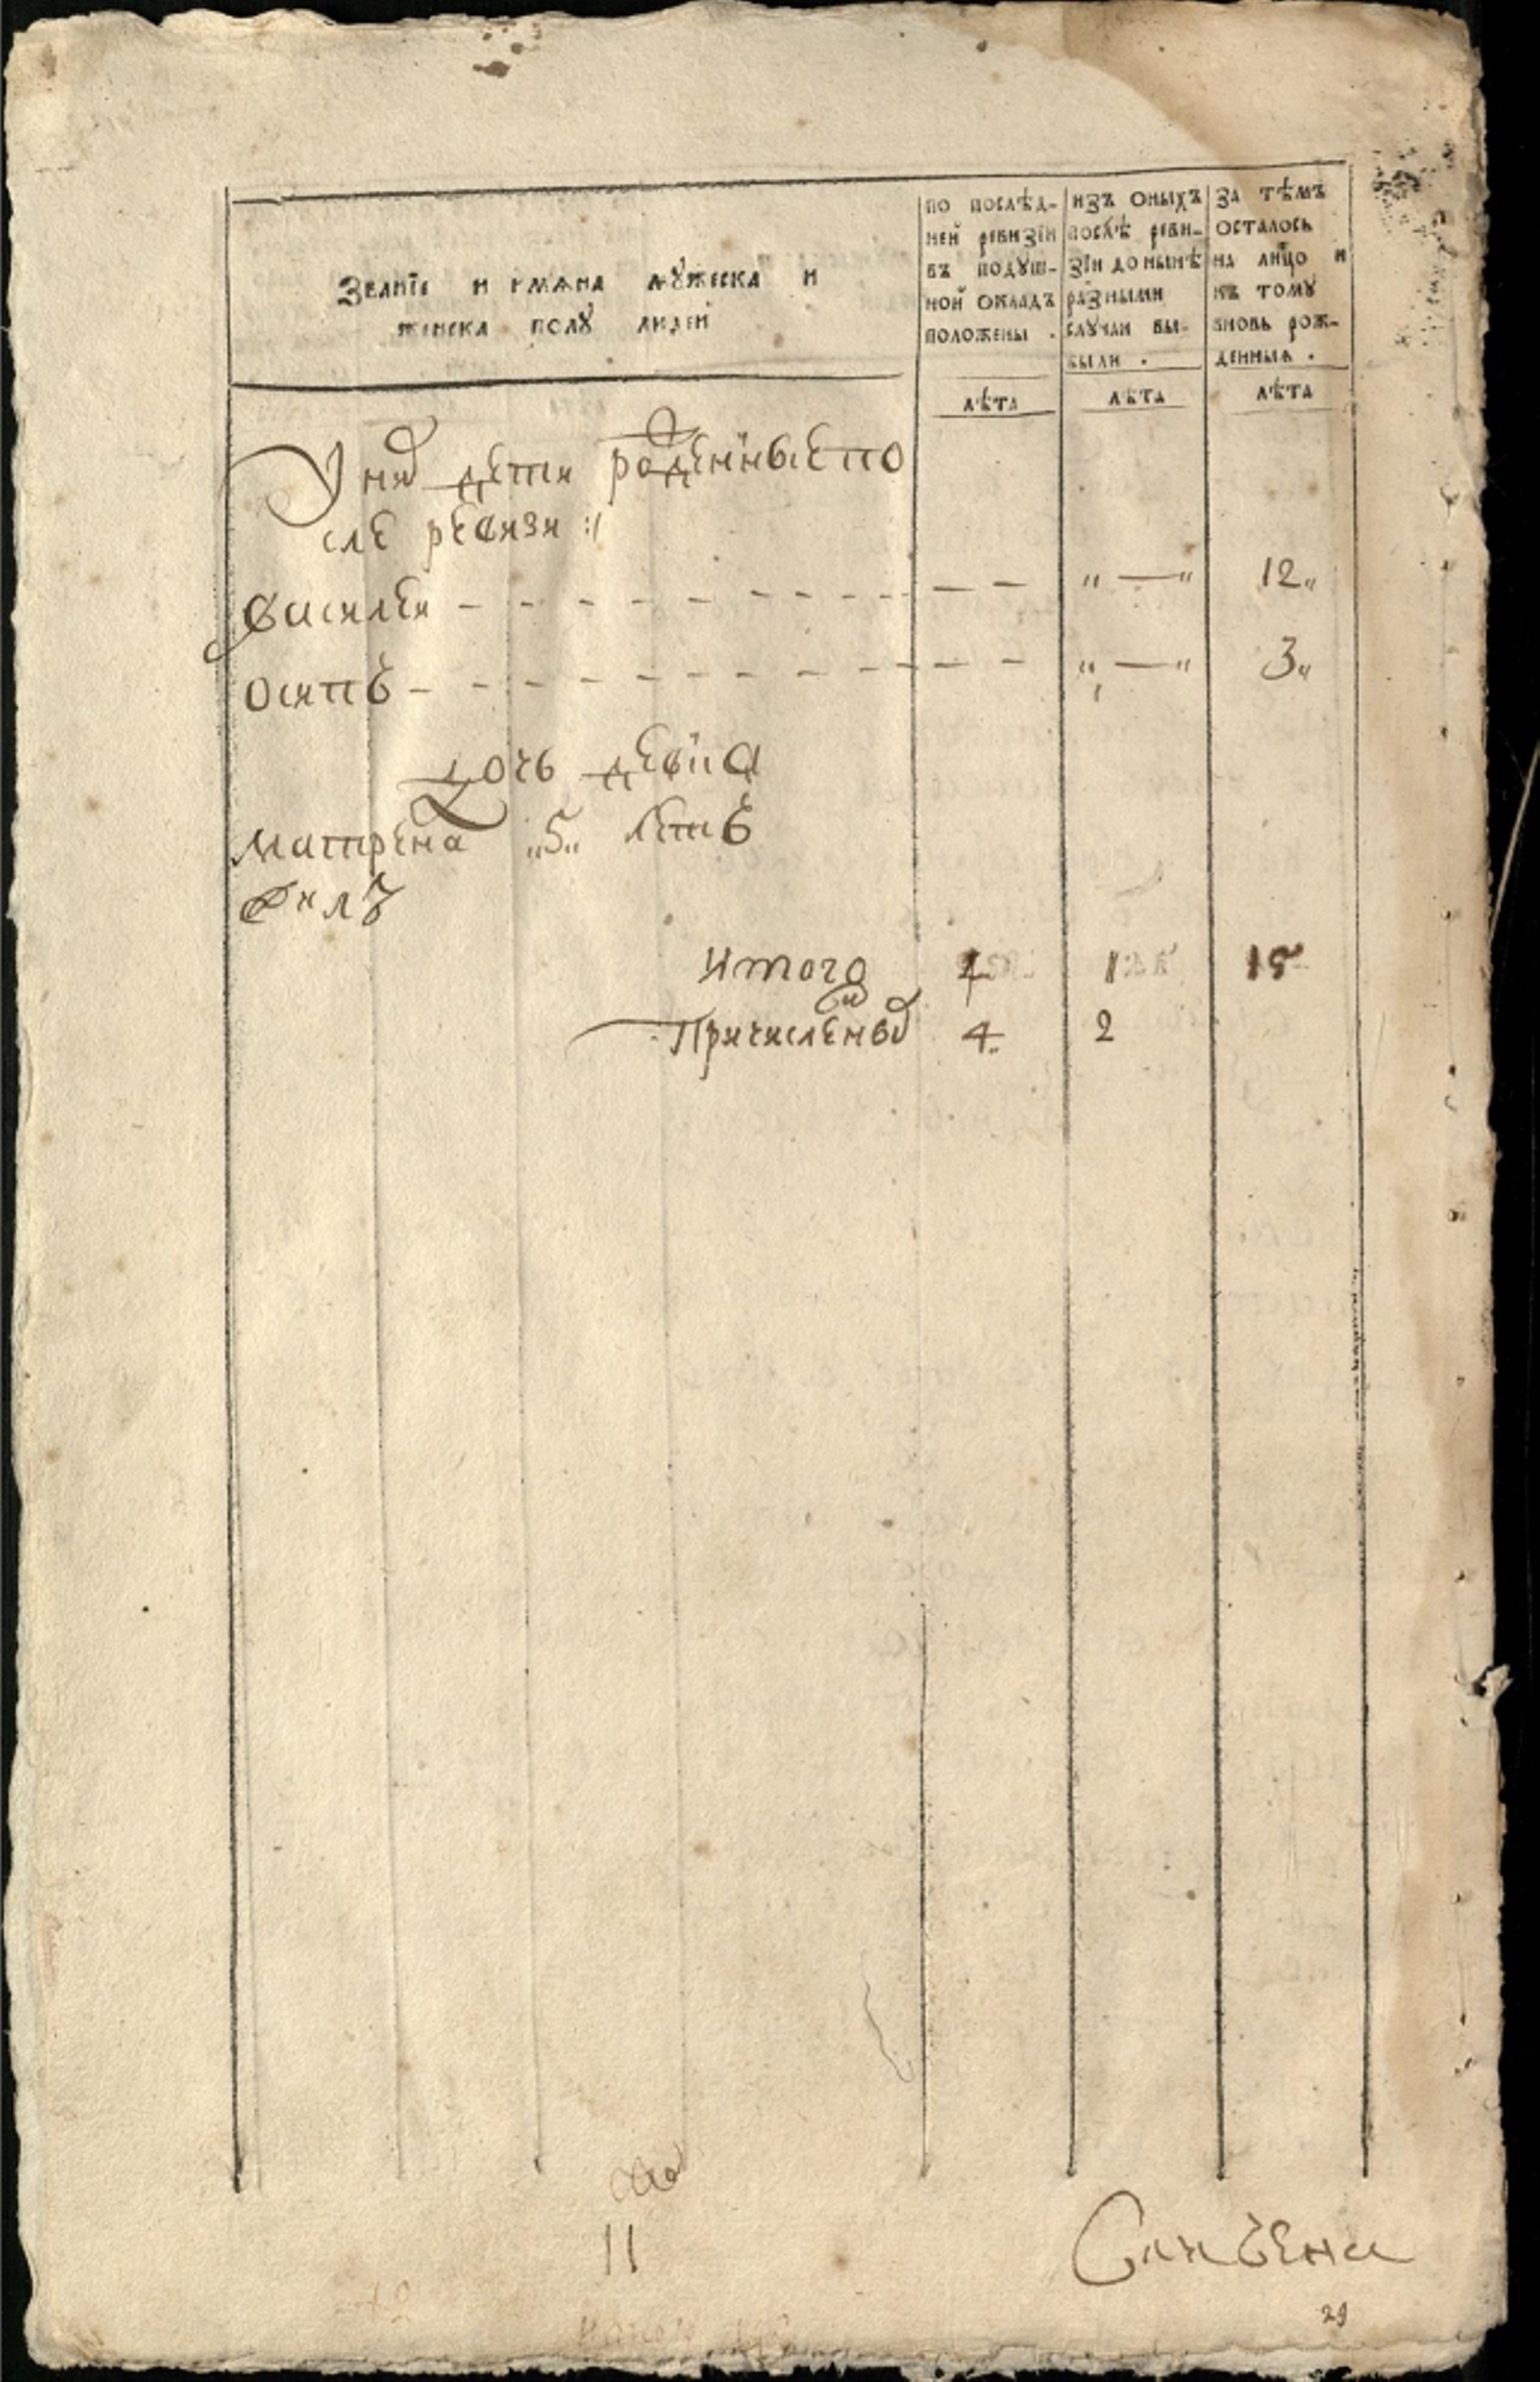 Званїе и имѧна мꙋжеска и
женска полꙋ людей
по послѣд-
ней ревизїи
въ подꙋш-
ной окладъ
положены .
изъ оныхъ
послѣ реви-
зїи до нынѣ
разными
слꙋчаи вы-
были .
за тѣмъ
осталось
на лицо и
къ томꙋ
вновь рож-
денныѧ .
лѣта лѣта лѣта
У них дети рожденные по
сле ревизи :/
Василеи - - - - - - - - - - „ — “ 12„
Осипъ - - - - - - - - - - „ — “ 3„
дочь девка
Матрена „5„ летъ
Итого 1 15
Причисленых 4 2
11
29